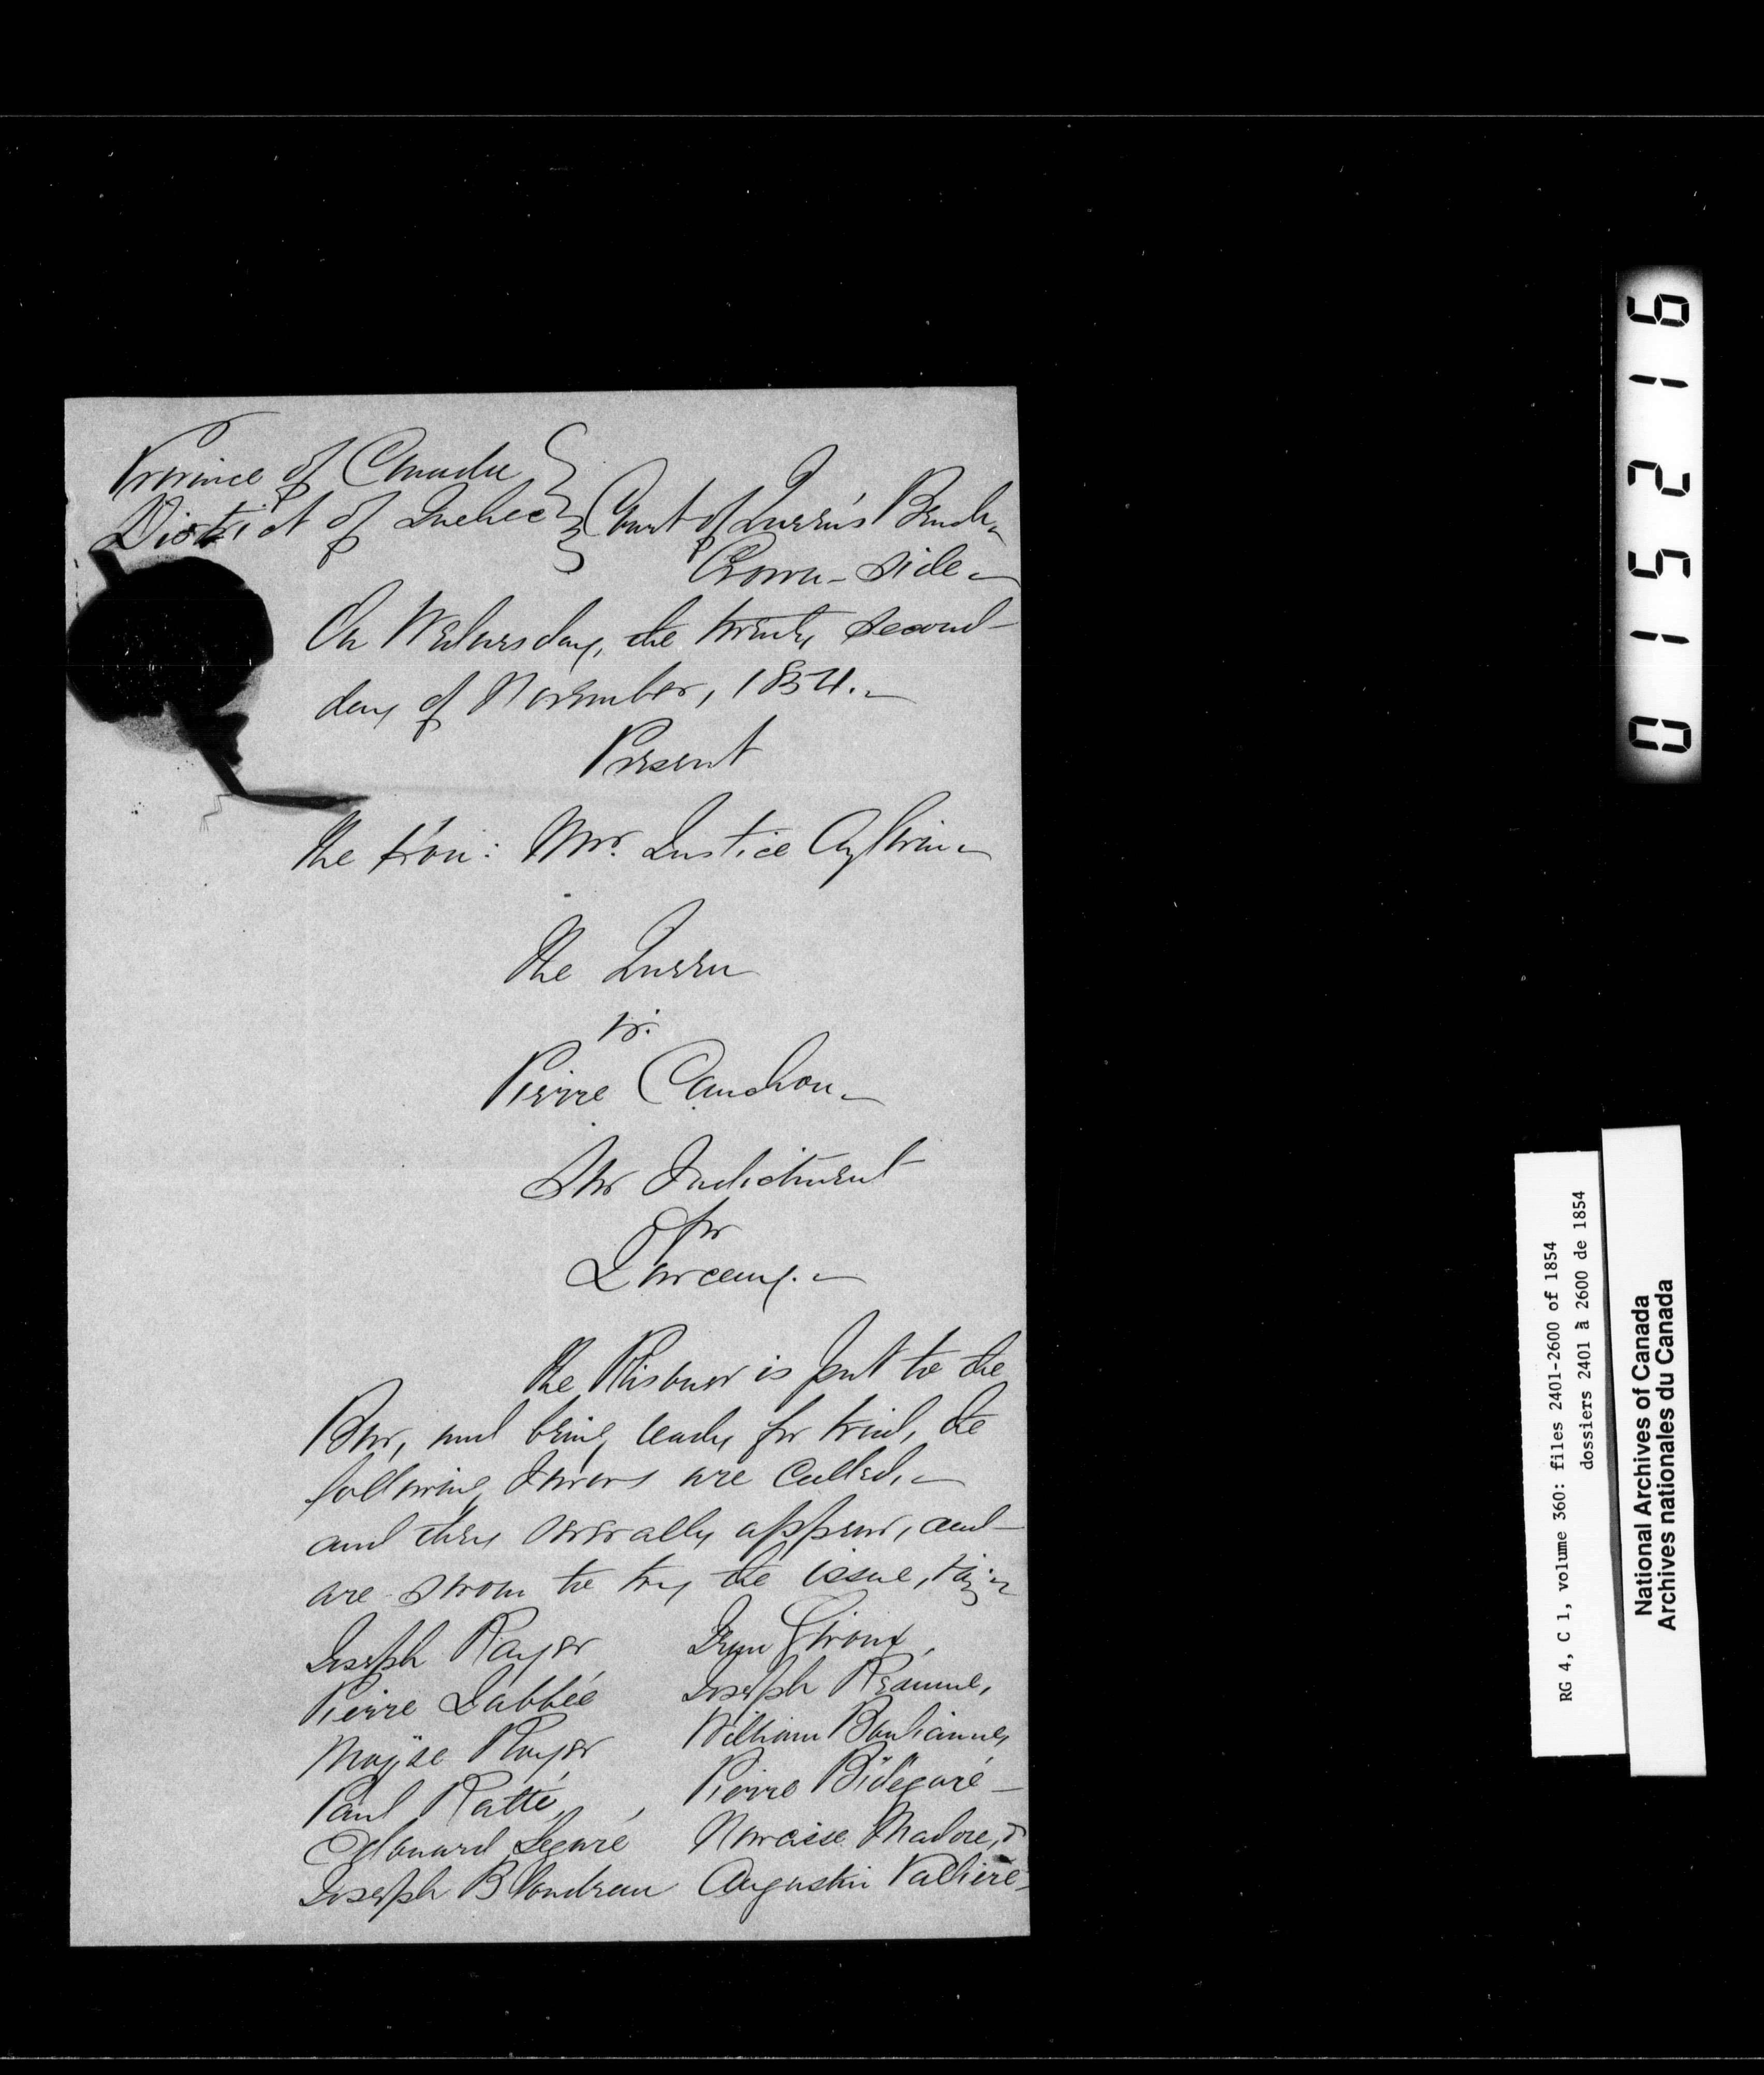 Province of Canada
District of Quebec
Court of Queen's Bench
Crown-side
On Wednesday, the twenty second
day of November, 1854.
Present
The Hon: Mr. Justice Aylwin
The Queen
vs.
Pierre Cauchon
Indictment
for
Larceny.
The Prisoner is put to the
Bar, and being ready for trial, the
following Jurors are called,
and they severally appear, and
are sworn to try the issue,
Joseph Royer
Jean Giroux,
Pierre Labbée
Joseph Réaume,
Moyïse Royer
William
Paul Ratté,
Pierre Bidégaré
Edouard Légaré
Narcisse Madore, &
Joseph Blondeau
Augustin Vallière
015216
RG 4, C 1, volume 360: files 2401-2600 of 1854
dossiers 2401 à 2600 de 1854
National Archives of Canada
Archives nationales du Canada